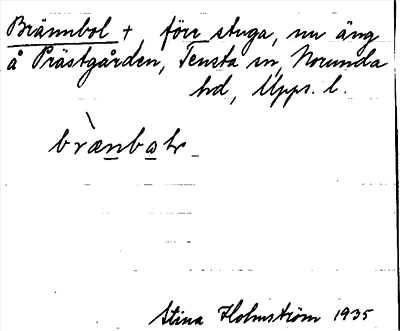 Brännbol +, förr stuga, nu äng
å Prästgården, Tensta sn, Norunda
hd, Upps. l.
bræ̀nbɷlr
Stina Holmström 1935